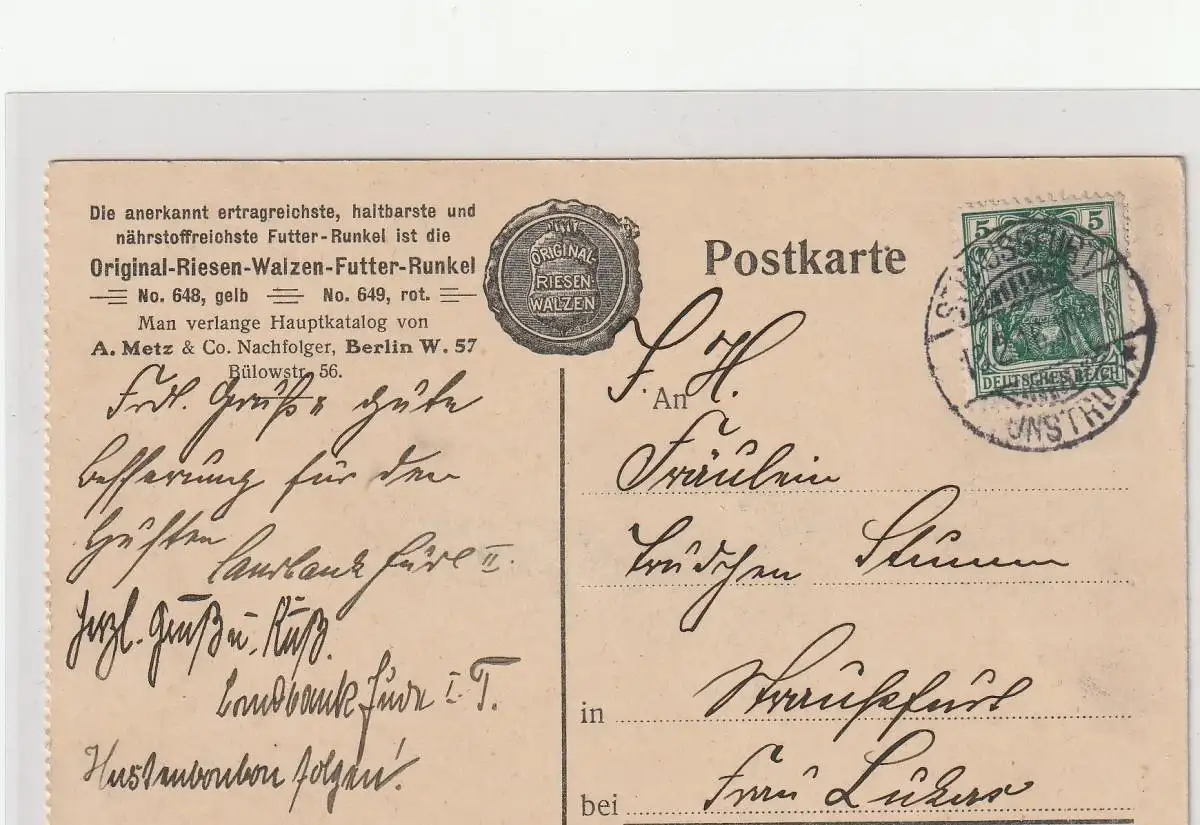 Die anerkannt ertragreichste, haltbarste und
nährstoffreichste Futter-Runkel ist die
Original-Riesen-Walzen-Futter-Runkel
No. 648, gelb No. 649, rot.
Man verlange Hauptkatalog von
A. Metz & Co. Nachfolger, Berlin W. 57
Bülowstr. 56.
ORIGINAL-
RIESEN-
WALZEN
Frdl. Grüße gute
Besserung für den
Husten
II.
Herzl. Gruß u. Kuß.
I. T.
Hustenbonbon folgen!
Postkarte
5 5
DEUTSCHES REICH
UNSTRU
F. H.
An
Fräulein
Trüdchen Stumm
in Straußfurt
bei Frau Lukas